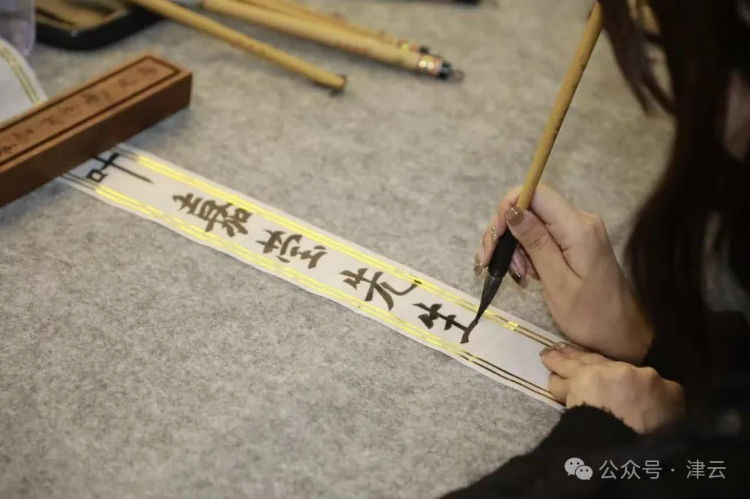 叶嘉莹先生
公众号·津云